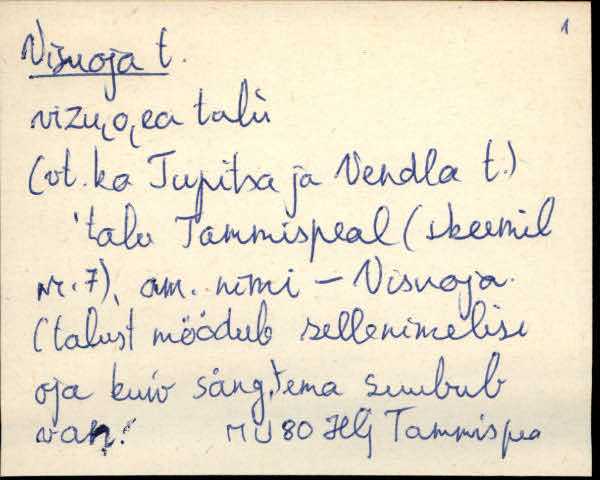 1
Visuoja t.
vizu̯o̯ea talù
(vt. ka Tupitsa ja Vendla t.)
'talu Tammispeal (skeemil
nr. 7), am. nimi - Visuoja.
(talust möödub sellenimelise
oja kuiv säng, tema suubub
van!
MU 80 HlJ Tammispea